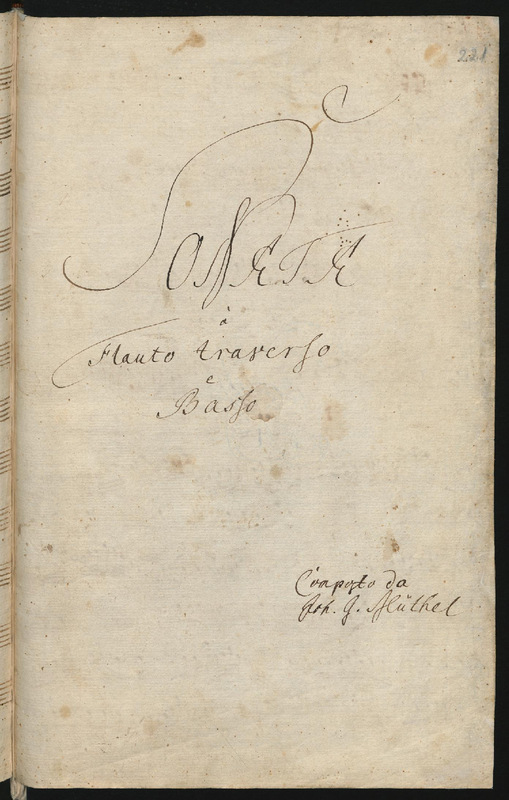 221
SONATA
à
Flauto traverso
e
Basso
Composto da
Joh. G. Müthel